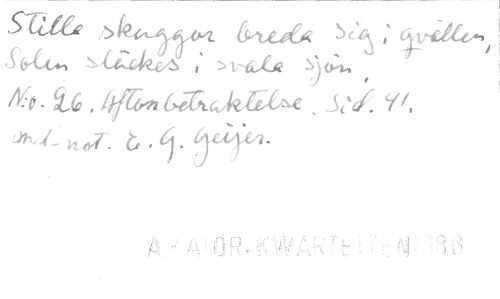 Stilla skuggor breda sig i qvällen,
Solen släckes i svala sjön,
N:o. 26. Aftonbetraktelse. Sid. 41.
med not. E. G. Geijer.
AMATÖR-KWARTETTEN 1888